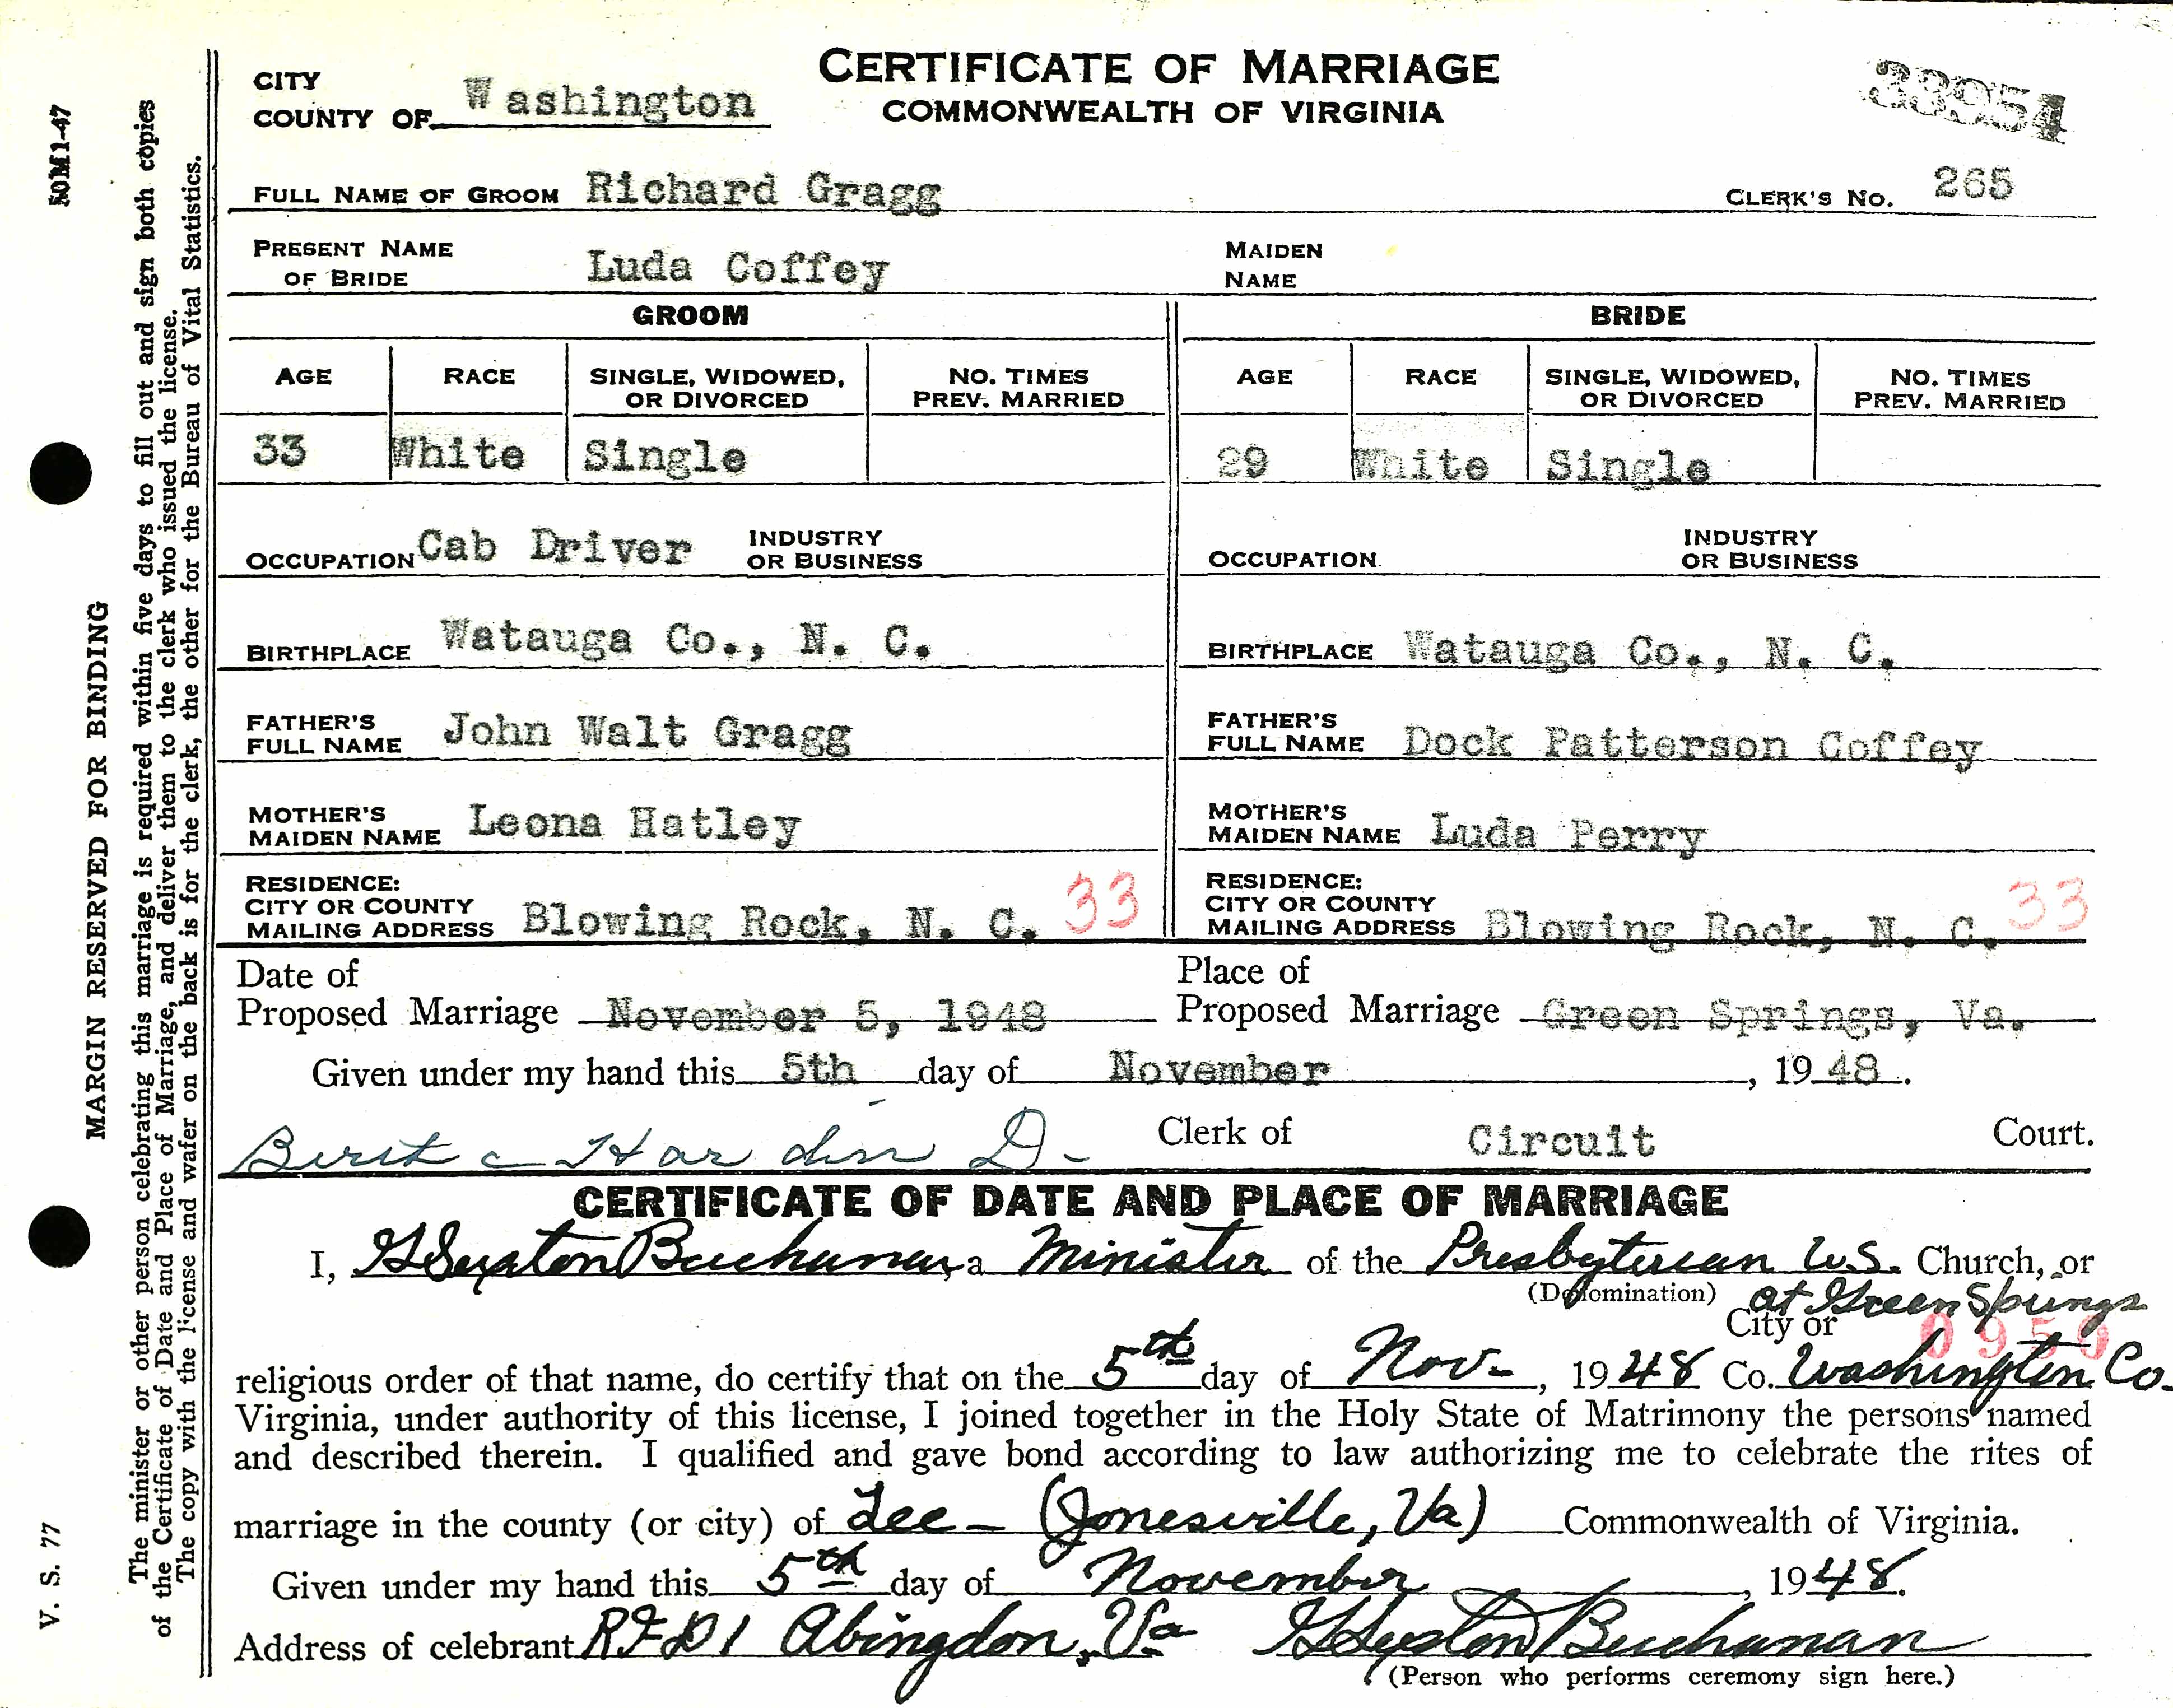 CERTIFICATE OF MARRIAGE
COMMONWEALTH OF VIRGINIA
33954
CITY
COUNTY OF Washington
FULL NAME OF GROOM Richard Gragg CLERK'S NO. 265
PRESENT NAME OF BRIDE Luda Coffey MAIDEN NAME
GROOM BRIDE
AGE RACE SINGLE, WIDOWED, OR DIVORCED NO. TIMES PREV. MARRIED AGE RACE SINGLE, WIDOWED, OR DIVORCED NO. TIMES PREV. MARRIED
33 White Single 29 White Single
OCCUPATION Cab Driver INDUSTRY OR BUSINESS OCCUPATION INDUSTRY OR BUSINESS
BIRTHPLACE Watauga Co., N. C. BIRTHPLACE Watauga Co., N. C.
FATHER'S FULL NAME John Walt Gragg FATHER'S FULL NAME Dock Patterson Coffey
MOTHER'S MAIDEN NAME Leona Hatley MOTHER'S MAIDEN NAME Luda Perry
RESIDENCE: CITY OR COUNTY MAILING ADDRESS Blowing Rock, N. C. 33 RESIDENCE: CITY OR COUNTY MAILING ADDRESS Blowing Rock, N. C. 33
Date of Proposed Marriage November 5, 1948 Place of Proposed Marriage Green Springs, Va.
Given under my hand this 5th day of November, 1948.
Clerk of Circuit Court.
CERTIFICATE OF DATE AND PLACE OF MARRIAGE
I, Buchanan, a Minister of the Presbyterian U.S. Church, or
(Denomination) at Green Springs
City or 0959
religious order of that name, do certify that on the 5th day of Nov-, 1948 Co. Washington Co.
Virginia, under authority of this license, I joined together in the Holy State of Matrimony the persons named
and described therein. I qualified and gave bond according to law authorizing me to celebrate the rites of
marriage in the county (or city) of Lee- (Jonesville, Va) Commonwealth of Virginia.
Given under my hand this 5th day of November, 1948.
Address of celebrant RFD 1 Abingdon, Va Buchanan
(Person who performs ceremony sign here.)
50M1-47
MARGIN RESERVED FOR BINDING
V. S. 77
The minister or other person celebrating this marriage is required within five days to fill out and sign both copies
of the Certificate of Date and Place of Marriage, and deliver them to the clerk who issued the license.
The copy with the license and wafer on the back is for the clerk, the other for the Bureau of Vital Statistics.